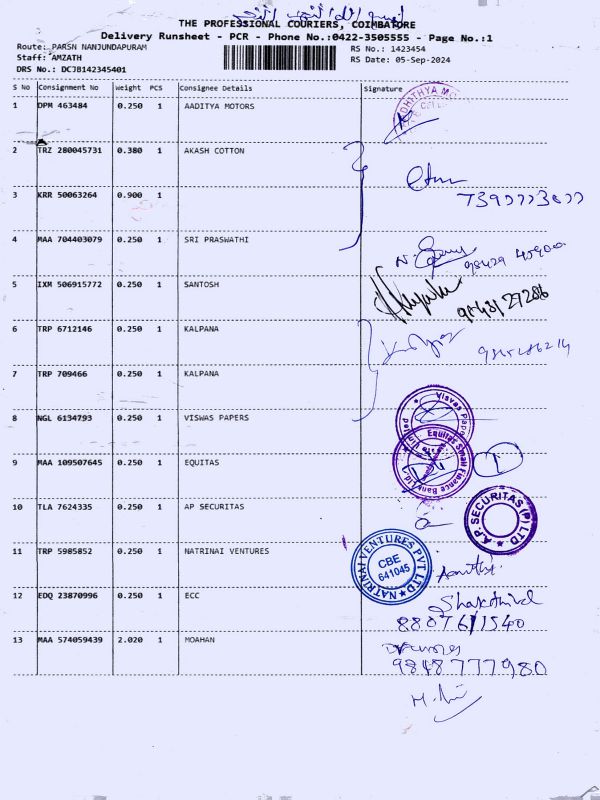 THE PROFESSIONAL COURIERS, COIMBATORE
Delivery Runsheet - PCR - Phone No.:0422-3505555 - Page No.:1
Route: PARSN NANJUNDAPURAM
RS No.: 1423454
Staff: AMZATH
RS Date: 05-Sep-2024
DRS No.: DCJB142345401
S No Consignment No Weight PCS Consignee Details Signature
1 DPM 463484 0.250 1 AADITYA MOTORS
2 TRZ 280045731 0.380 1 AKASH COTTON
3 KRR 50063264 0.900 1
4 MAA 704403079 0.250 1 SRI PRASWATHI
5 IXM 506915772 0.250 1 SANTOSH
9843127286
6 TRP 6712146 0.250 1 KALPANA
7 TRP 709466 0.250 1 KALPANA
8 NGL 6134793 0.250 1 VISWAS PAPERS
Visvas Pape
9 MAA 109507645 0.250 1 EQUITAS
Equitas Small Finance Bank Ltd
10 TLA 7624335 0.250 1 AP SECURITAS
A.P. SECURITAS (P) LTD
11 TRP 5985852 0.250 1 NATRINAI VENTURES
NATRINAI VENTURES PVT LTD
CBE
641045
12 EDQ 23870996 0.250 1 ECC
Shakthivel
8807611540
13 MAA 574059439 2.020 1 MOAHAN
9848777980